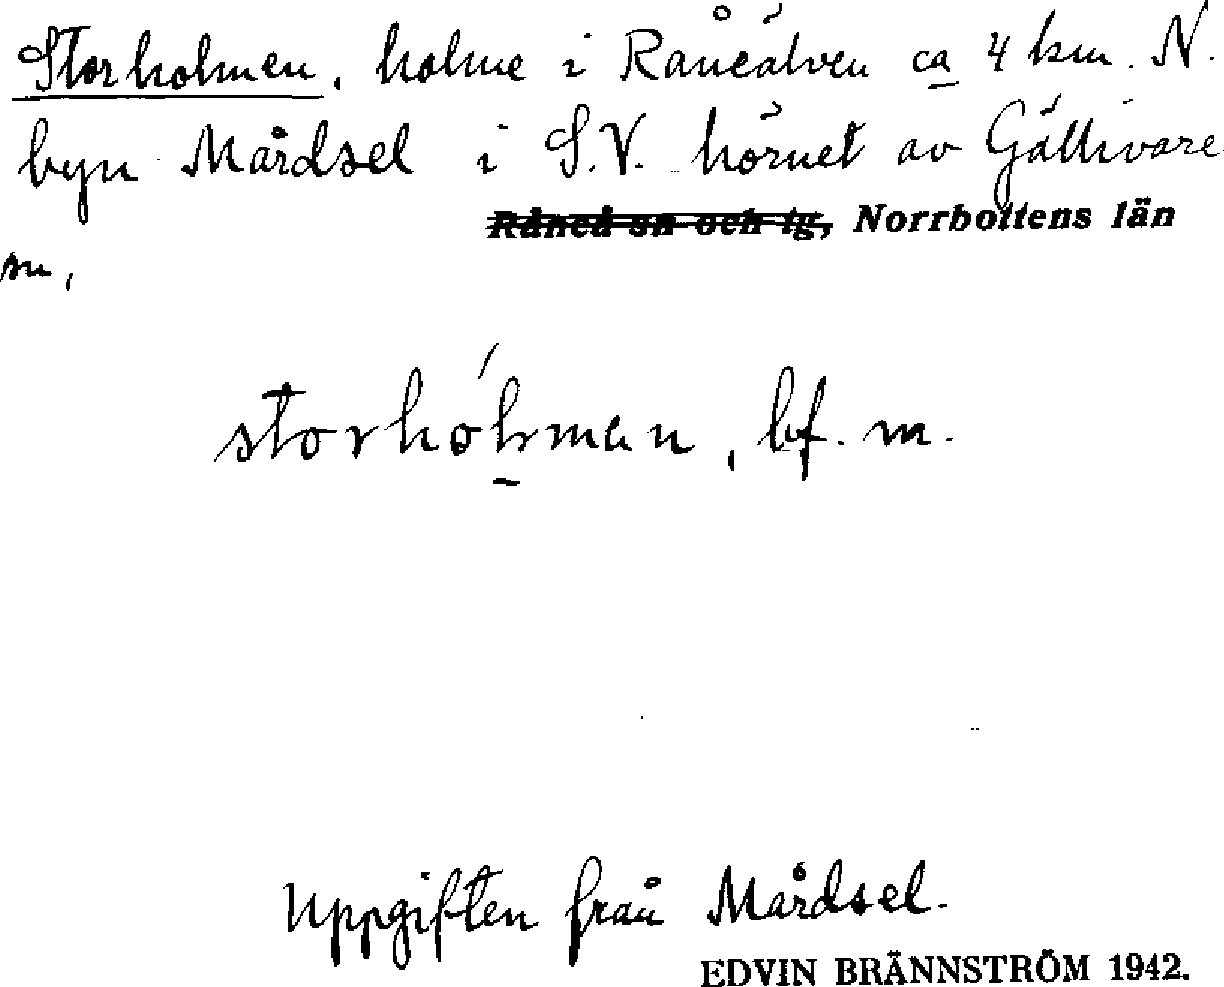 Storholmen, holme i Råneälven ca 4 km. N.
byn Mårdsel i S.V. hörnet av Gällivare
Råneå sn och tg, Norrbottens län
sn,
storhólman, bf. m.
Uppgiften från Mårdsel.
EDVIN BRÄNNSTRÖM 1942.